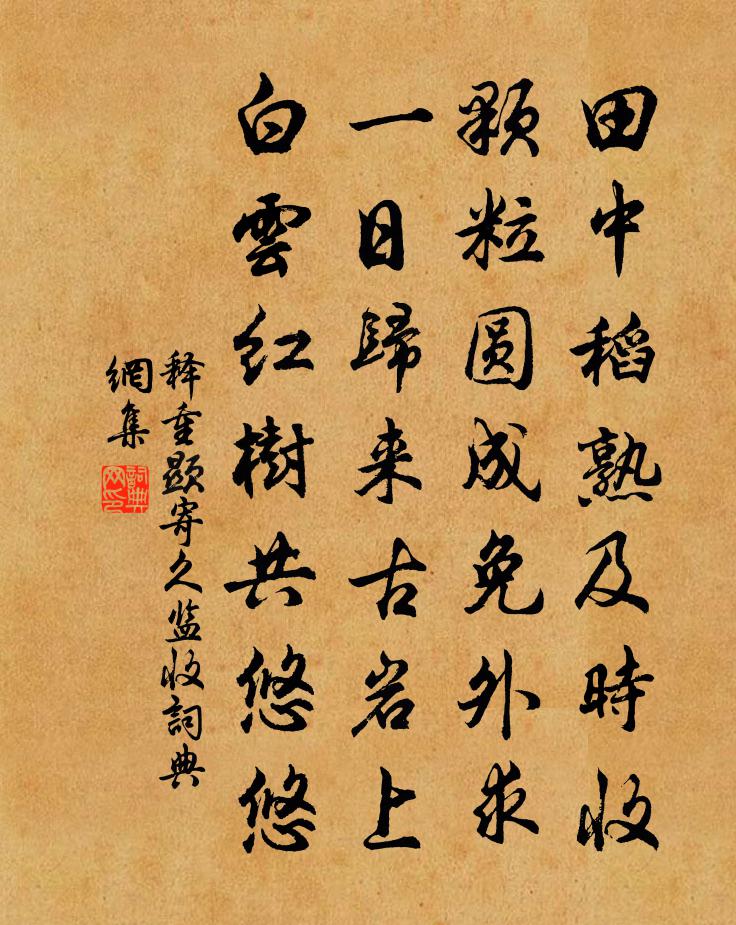 田中稻熟及時收
顆粒圆成免外求
一日歸来古岩上
白雲红樹共悠悠
释重顯寄久监收詞典
網集
詞典
网印